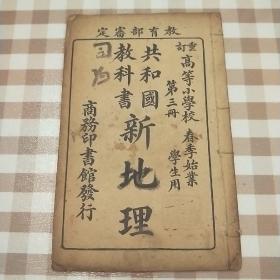 教育部審定
重訂
高等小學校 春季始業
第三冊 學生用
共和國
教科書
新地理
商務印書館發行